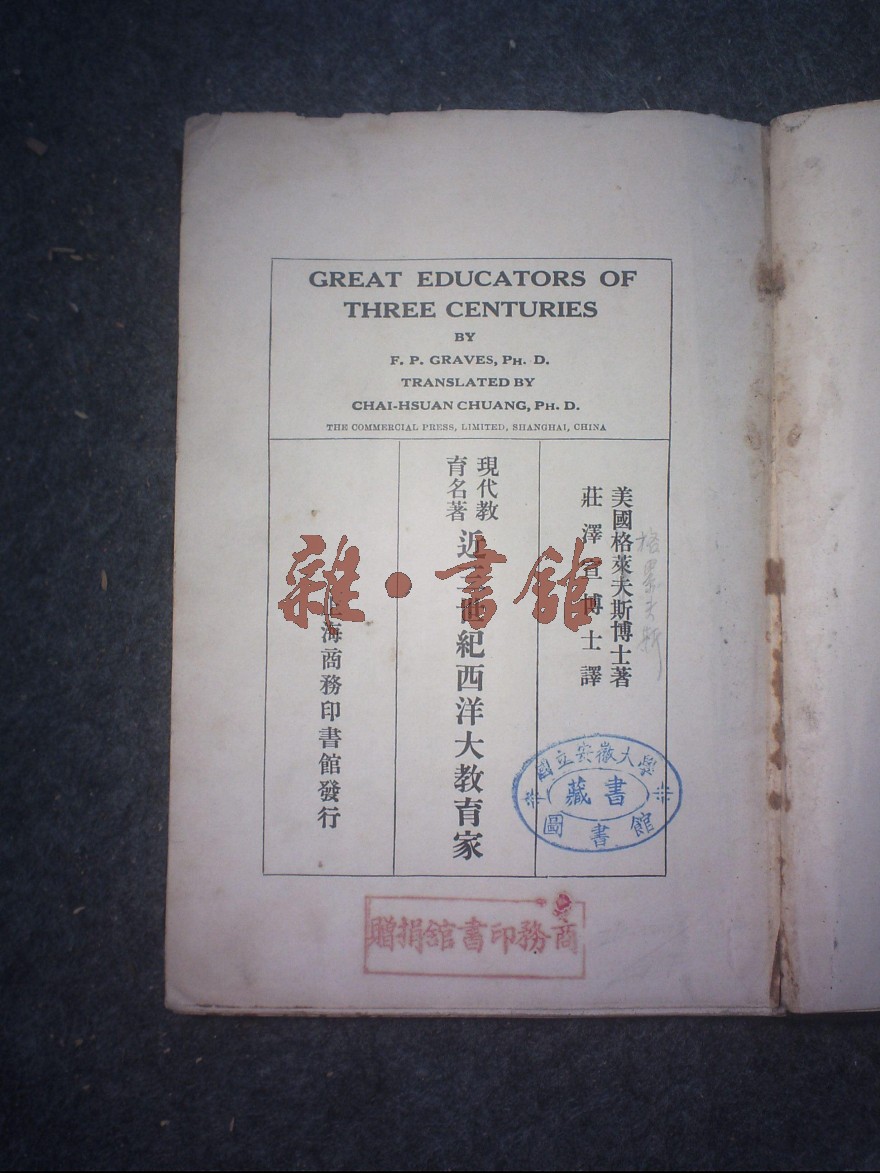 GREAT EDUCATORS OF
THREE CENTURIES
BY
F. P. GRAVES, PH. D.
TRANSLATED BY
CHAI-HSUAN CHUANG, PH. D.
THE COMMERCIAL PRESS, LIMITED, SHANGHAI, CHINA
美國格萊夫斯博士著
莊澤宣博士譯
現代教
育名著
近三世紀西洋大教育家
上海商務印書館發行
雜·書館
國立安徽大學
藏書
圖書館
商務印書館捐贈